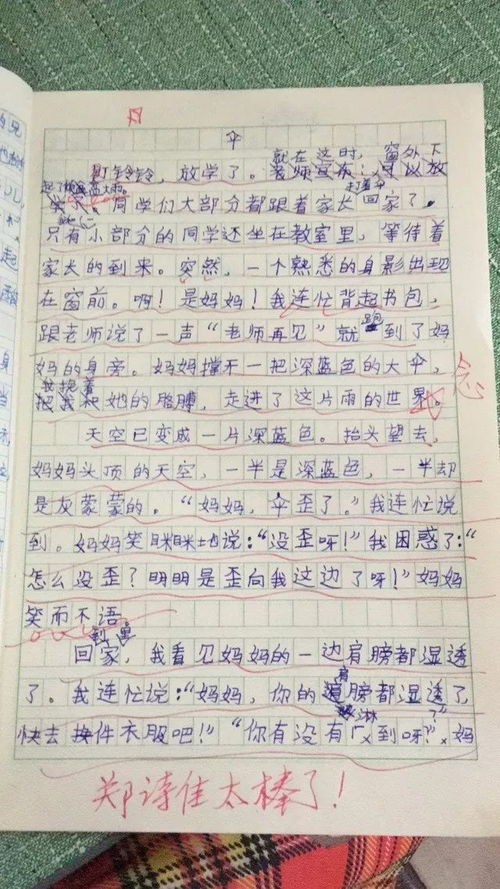 伞
就在这时，窗外下
叮铃铃，放学了。
起了倾盆大雨。
打着伞
同学们大部分都跟着家长回家了。
只有小部分的同学还坐在教室里，等待着
家长的到来。突然，一个熟悉的身影出现
在窗前。啊！是妈妈！我连忙背起书包，
跟老师说了一声“老师再见”就跑到了妈
妈的身旁。妈妈撑开一把深蓝色的大伞，
我挽着
她的胳膊，走进了这片雨的世界。
天空已变成一片深蓝色。抬头望去，
妈妈头顶的天空，一半是深蓝色，一半却
是灰蒙蒙的。“妈妈，伞歪了。”我连忙说
到。妈妈笑眯眯地说：“没歪呀！”我困惑了：“
怎么没歪？明明是歪向我这边了呀！”妈妈
笑而不语。
回到家，我看见妈妈的一边肩膀都湿透
了。我连忙说：“妈妈，你的肩膀都湿透了
快去换件衣服吧！”“你有没有淋到呀？”妈
郑诗佳太棒了！